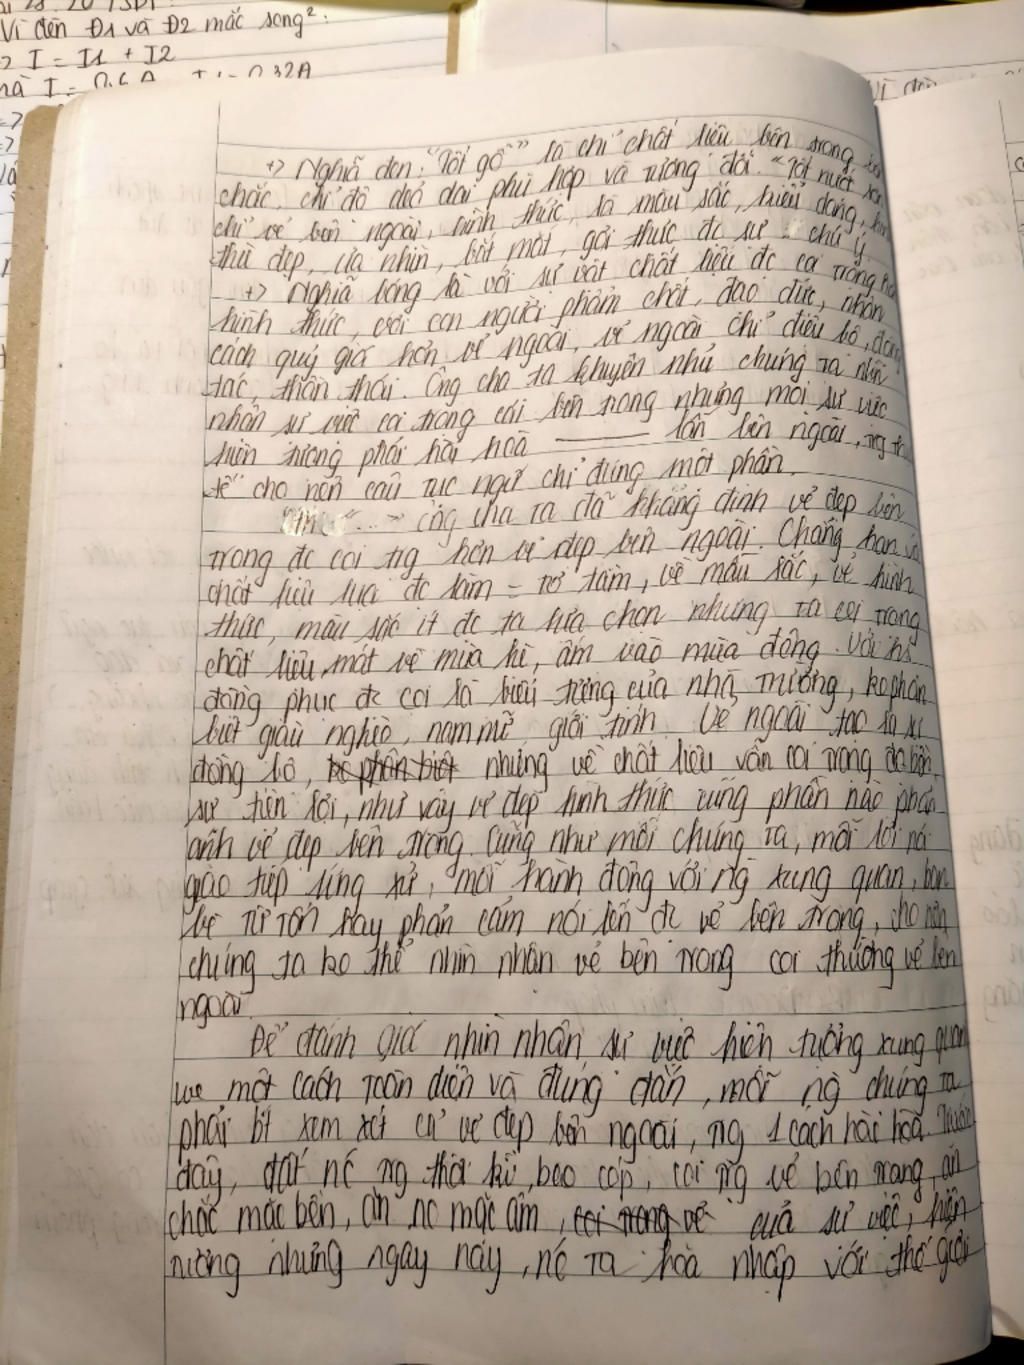 Vì đèn Đ1 và Đ2 mắc song²:
=> I = I1 + I2
mà I = 0,6A
+> Nghĩa đen: "Tốt gỗ" là chỉ chất liệu bên trong
chắc, chỉ độ dẻo dai phù hợp và tương đối. "Tốt nước sơn
chỉ vẻ bên ngoài, hình thức, là màu sắc, kiểu dáng,
thù đẹp, ưa nhìn, bắt mắt, gợi thức đc sự chú ý.
+> Nghĩa bóng là với sự vật chất liệu đc coi trọng hơn
hình thức, với con người phẩm chất, đạo đức, nhân
cách quý giá hơn vẻ ngoài, vẻ ngoài chỉ điệu bộ, động
tác, thần thái. Ông cha ta khuyên nhủ chúng ta nhìn
nhận sự việc coi trọng cái bên trong nhưng mọi sự việc
hiện tượng phải hài hoà lẫn bên ngoài,
tế cho nên câu tục ngữ chỉ đúng một phần.
"..." ông cha ta đã khẳng định vẻ đẹp bên
trong đc coi trg hơn vẻ đẹp bên ngoài. Chẳng hạn
chất liệu lụa đc làm = tơ tằm, về màu sắc, về hình
thức, màu sắc ít đc ta lựa chọn nhưng ta coi trọng
chất liệu mát về mùa hè, ấm vào mùa đông. Với
đồng phục đc coi là biểu tượng của nhà trường, ko phân
biệt giàu nghèo, nam nữ giới tính. Vẻ ngoài tạo ra sự
đồng bộ, ko phân biệt nhưng về chất liệu vẫn coi trọng độ bền,
sự tiện lợi, như vậy vẻ đẹp hình thức cũng phần nào phản
ánh vẻ đẹp bên trong. Cũng như mỗi chúng ta, mỗi lời nói
giao tiếp ứng xử, mỗi hành động với ng xung quan, bạn
bè từ tốn hay phản cảm nói lên đc vẻ bên trong, cho nên
chúng ta ko thể nhìn nhận vẻ bên trong coi thường vẻ bên
ngoài.
Để đánh giá nhìn nhận sự việc hiện tượng xung quan
một cách toàn diện và đúng đắn, mỗi ng chúng ta
phải bt xem xét cả vẻ đẹp bên ngoài, trg 1 cách hài hoà. Trước
đây, đất nc trg thời kì bao cấp, coi trg vẻ bên trong, ăn
chắc mặc bền, ăn no mặc ấm, coi trọng vẻ của sự việc, hiện
tượng nhưng ngày nay, nc ta hòa nhập với thế giới